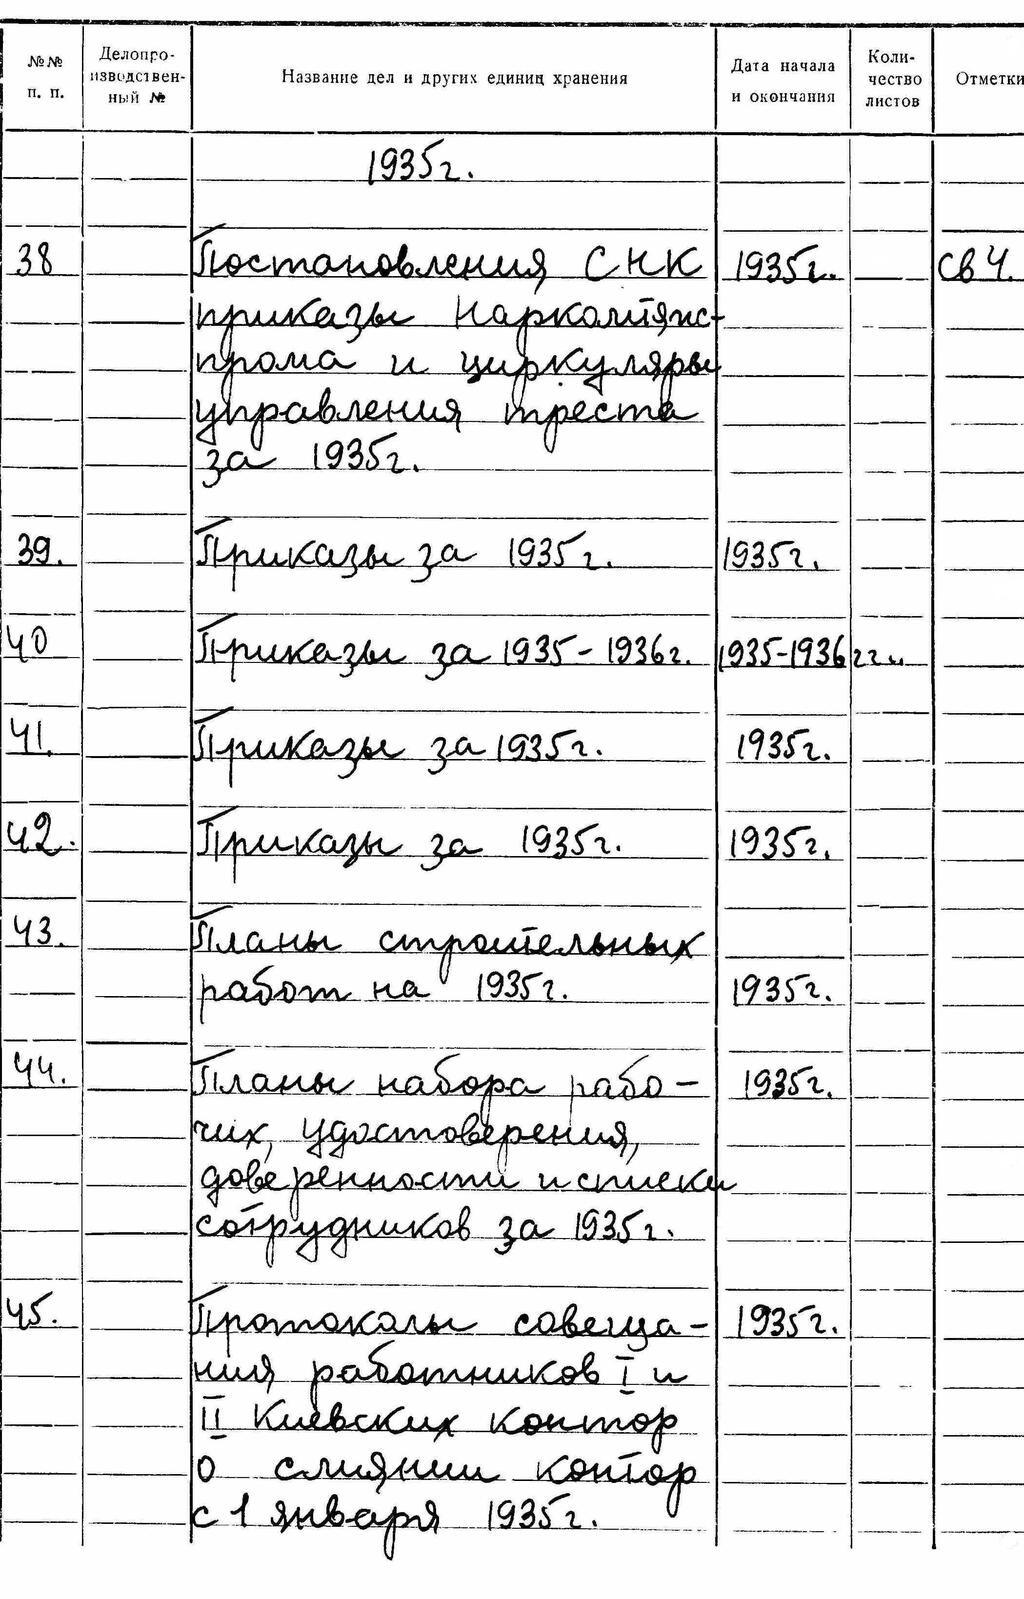 №№ п. п.
Делопро-
изводствен-
ный №
Название дел и других единиц хранения
Дата начала
и окончания
Коли-
чество
листов
Отметки
1935г.
38 Постановления СНК 1935г. св Ч.
приказы Наркомтяж-
прома и циркуляры
управления треста
за 1935г.
39. Приказы за 1935г. 1935г.
40 Приказы за 1935-1936г. 1935-1936гг.
41. Приказы за 1935г. 1935г.
42. Приказы за 1935г. 1935г.
43. Планы строительных
работ на 1935г. 1935г.
44. Планы набора рабо- 1935г.
чих, удостоверения,
доверенности и списки
сотрудников за 1935г.
45. Протоколы совеща- 1935г.
ния работников I и
II Киевских контор
о слиянии контор
с 1 января 1935г.